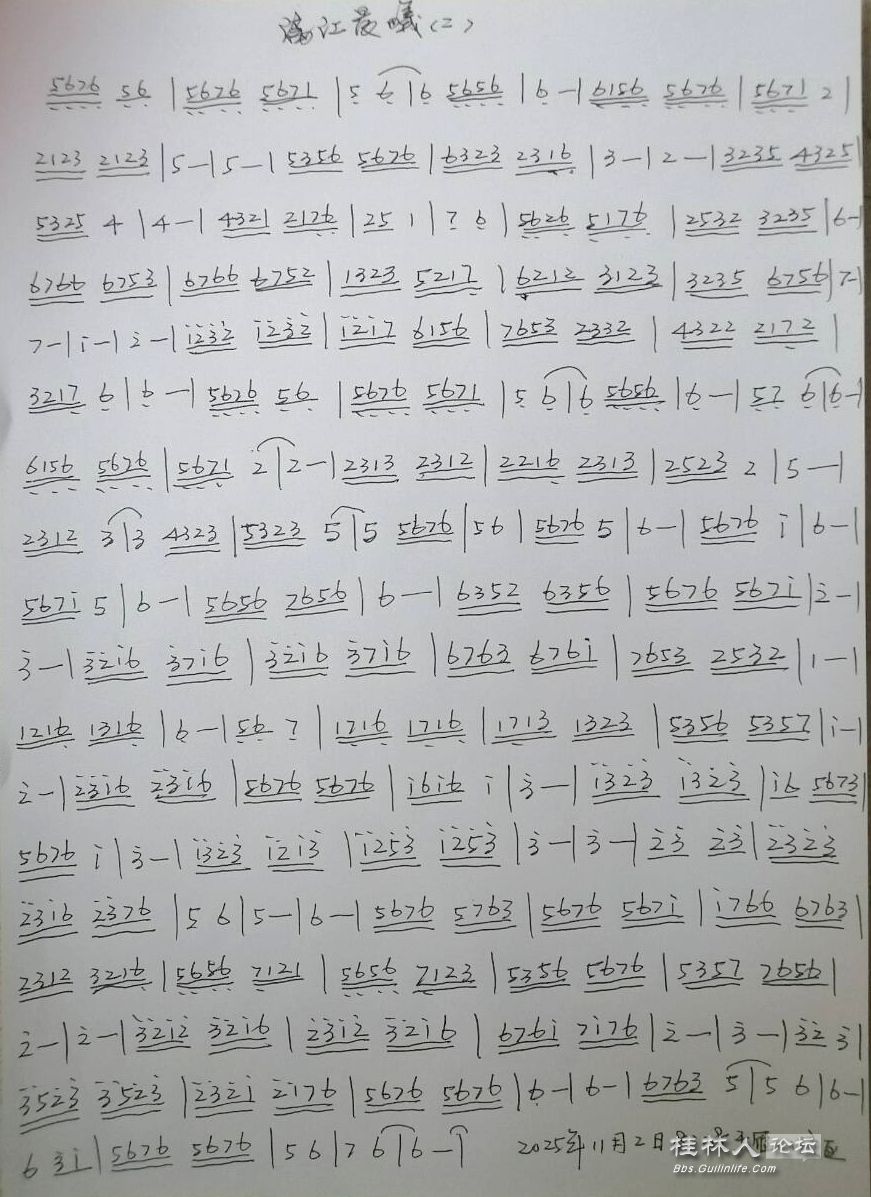 漓江晨曦(二)
5676 56 | 5676 5671 | 5 6 | 6 5656 | 6 - | 6156 5676 | 5671 2 |
2123 2123 | 5 - | 5 - | 5356 5676 | 6323 2316 | 3 - | 2 - | 3235 4325 |
5325 4 | 4 - | 4321 2176 | 25 1 | 7 6 | 5626 5176 | 2532 3235 | 6 - |
6766 6753 | 6766 6752 | 1323 5217 | 6212 3123 | 3235 6756 | 7 - |
7 - | i - | 2 - | 1232 1232 | 1217 6156 | 7653 2332 | 4322 2172 |
3217 6 | 6 - | 5626 56 | 5676 5671 | 5 6 | 6 5656 | 6 - | 57 6 | 6 - |
6156 5676 | 5671 2 | 2 - | 2313 2312 | 2216 2313 | 2523 2 | 5 - |
2312 3 | 3 4323 | 5323 5 | 5 5676 | 56 | 5676 5 | 6 - | 5676 i | 6 - |
567i 5 | 6 - | 5656 7656 | 6 - | 6352 6356 | 5676 567i | 2 - |
3 - | 3216 3716 | 3216 3716 | 6763 676i | 7653 2532 | 1 - |
1216 1316 | 6 - | 56 7 | 1716 1716 | 1713 1323 | 5356 5357 | i - |
2 - | 2316 2316 | 5676 5676 | i6i6 i | 3 - | 1323 1323 | i6 5673 |
5676 i | 3 - | 1323 1213 | 1253 1253 | 3 - | 3 - | 23 23 | 2323
2316 2376 | 5 6 | 5 - | 6 - | 5676 5763 | 5676 567i | i766 6763 |
2312 3216 | 5656 7121 | 5656 7123 | 5356 5676 | 5357 7656 |
2 - | 2 - | 3212 3216 | 2312 3216 | 676i 7i76 | 2 - | 3 - | 32 3 |
3523 3523 | 2321 2176 | 5676 5676 | 6 - | 6 - | 6763 5 | 5 6 | 6 - |
6 3i | 5676 5676 | 5 6 | 7 6 | 6 - | 2025年11月2日
桂林人论坛
Bbs.Guilinlife.Com